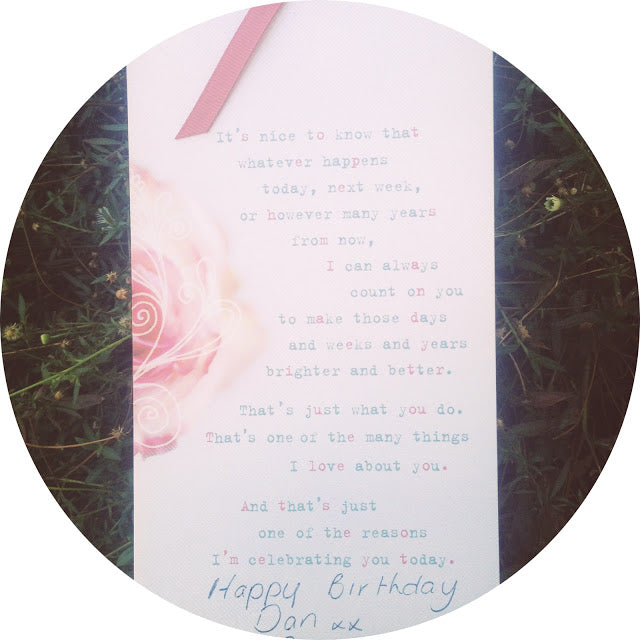 It's nice to know that
whatever happens
today, next week,
or however many years
from now,
I can always
count on you
to make those days
and weeks and years
brighter and better.
That's just what you do.
That's one of the many things
I love about you.
And that's just
one of the reasons
I'm celebrating you today.
Happy Birthday
Dan xx